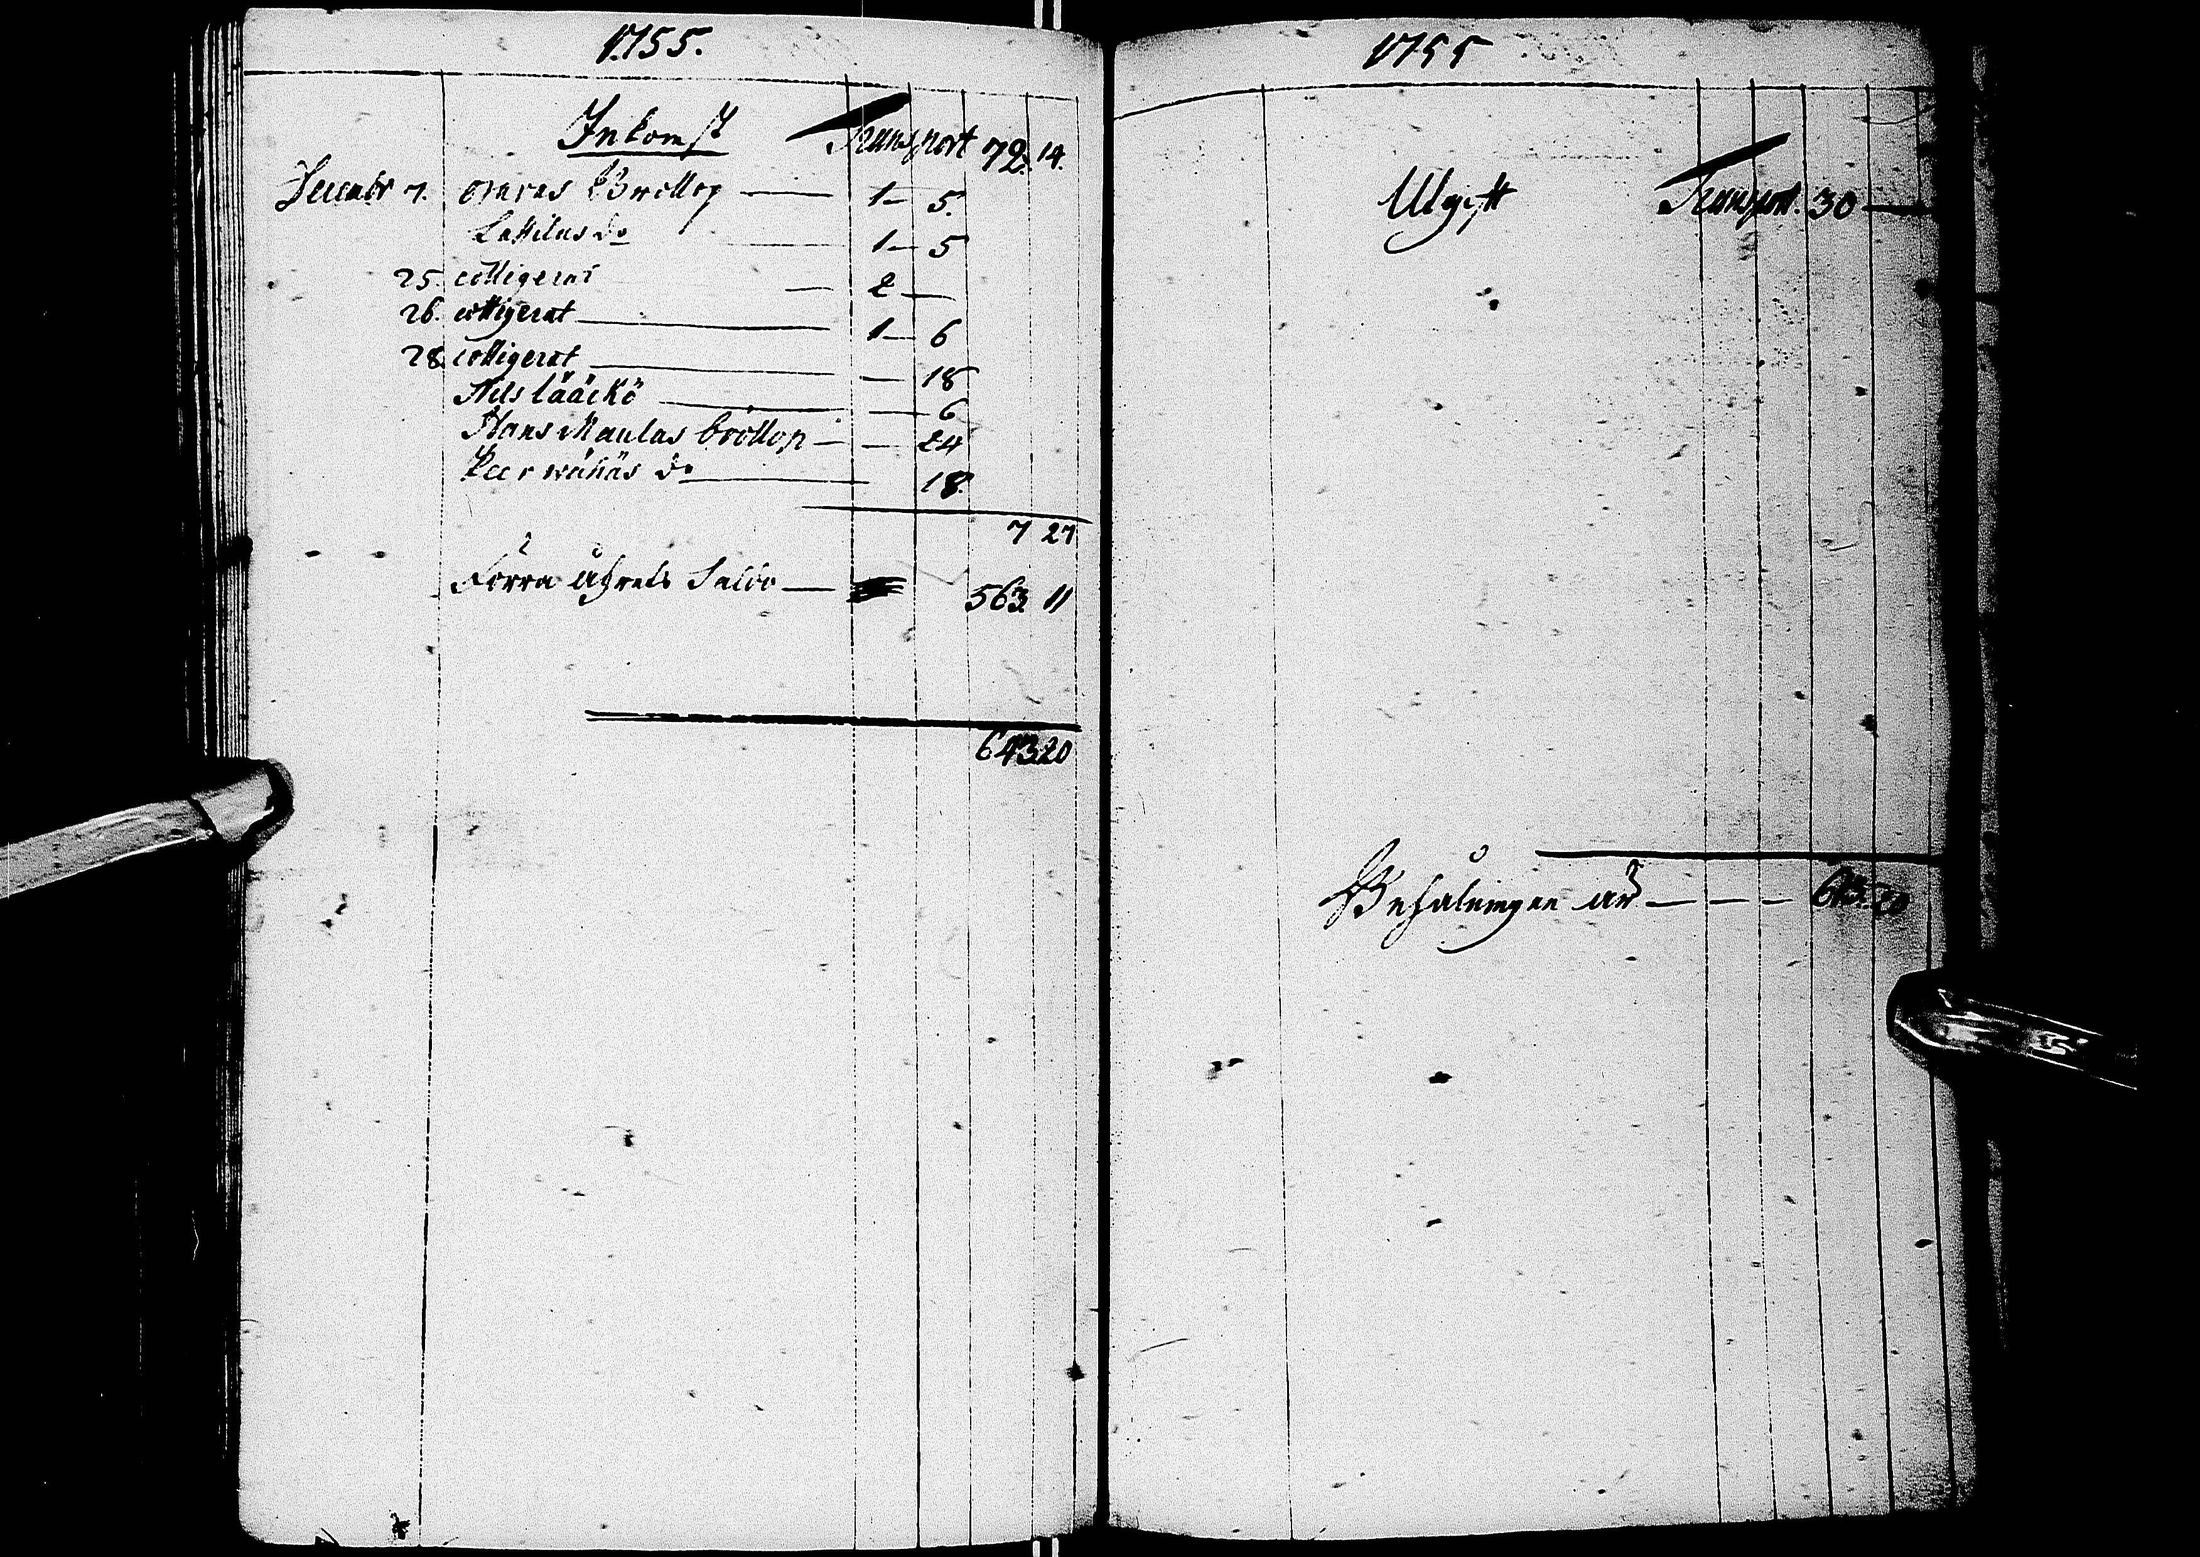 1755.
Inkomst Transport 72. 14.
Decembr 7. Omras Bröllop — 1 — 5.
Lassilas do — 1 — 5
25. colligerat — 2 —
26. colligerat — 1 — 6
28. colligerat — 18
Nils Lääckö — 6
Hans Maulas bröllop — 24
Peer wähäs do — 18.
7 27
Förra åhrets Saldo — 563. 11
643 20
1755
Utgift Transport. 30 —
Behålningen är — — — 613. 20